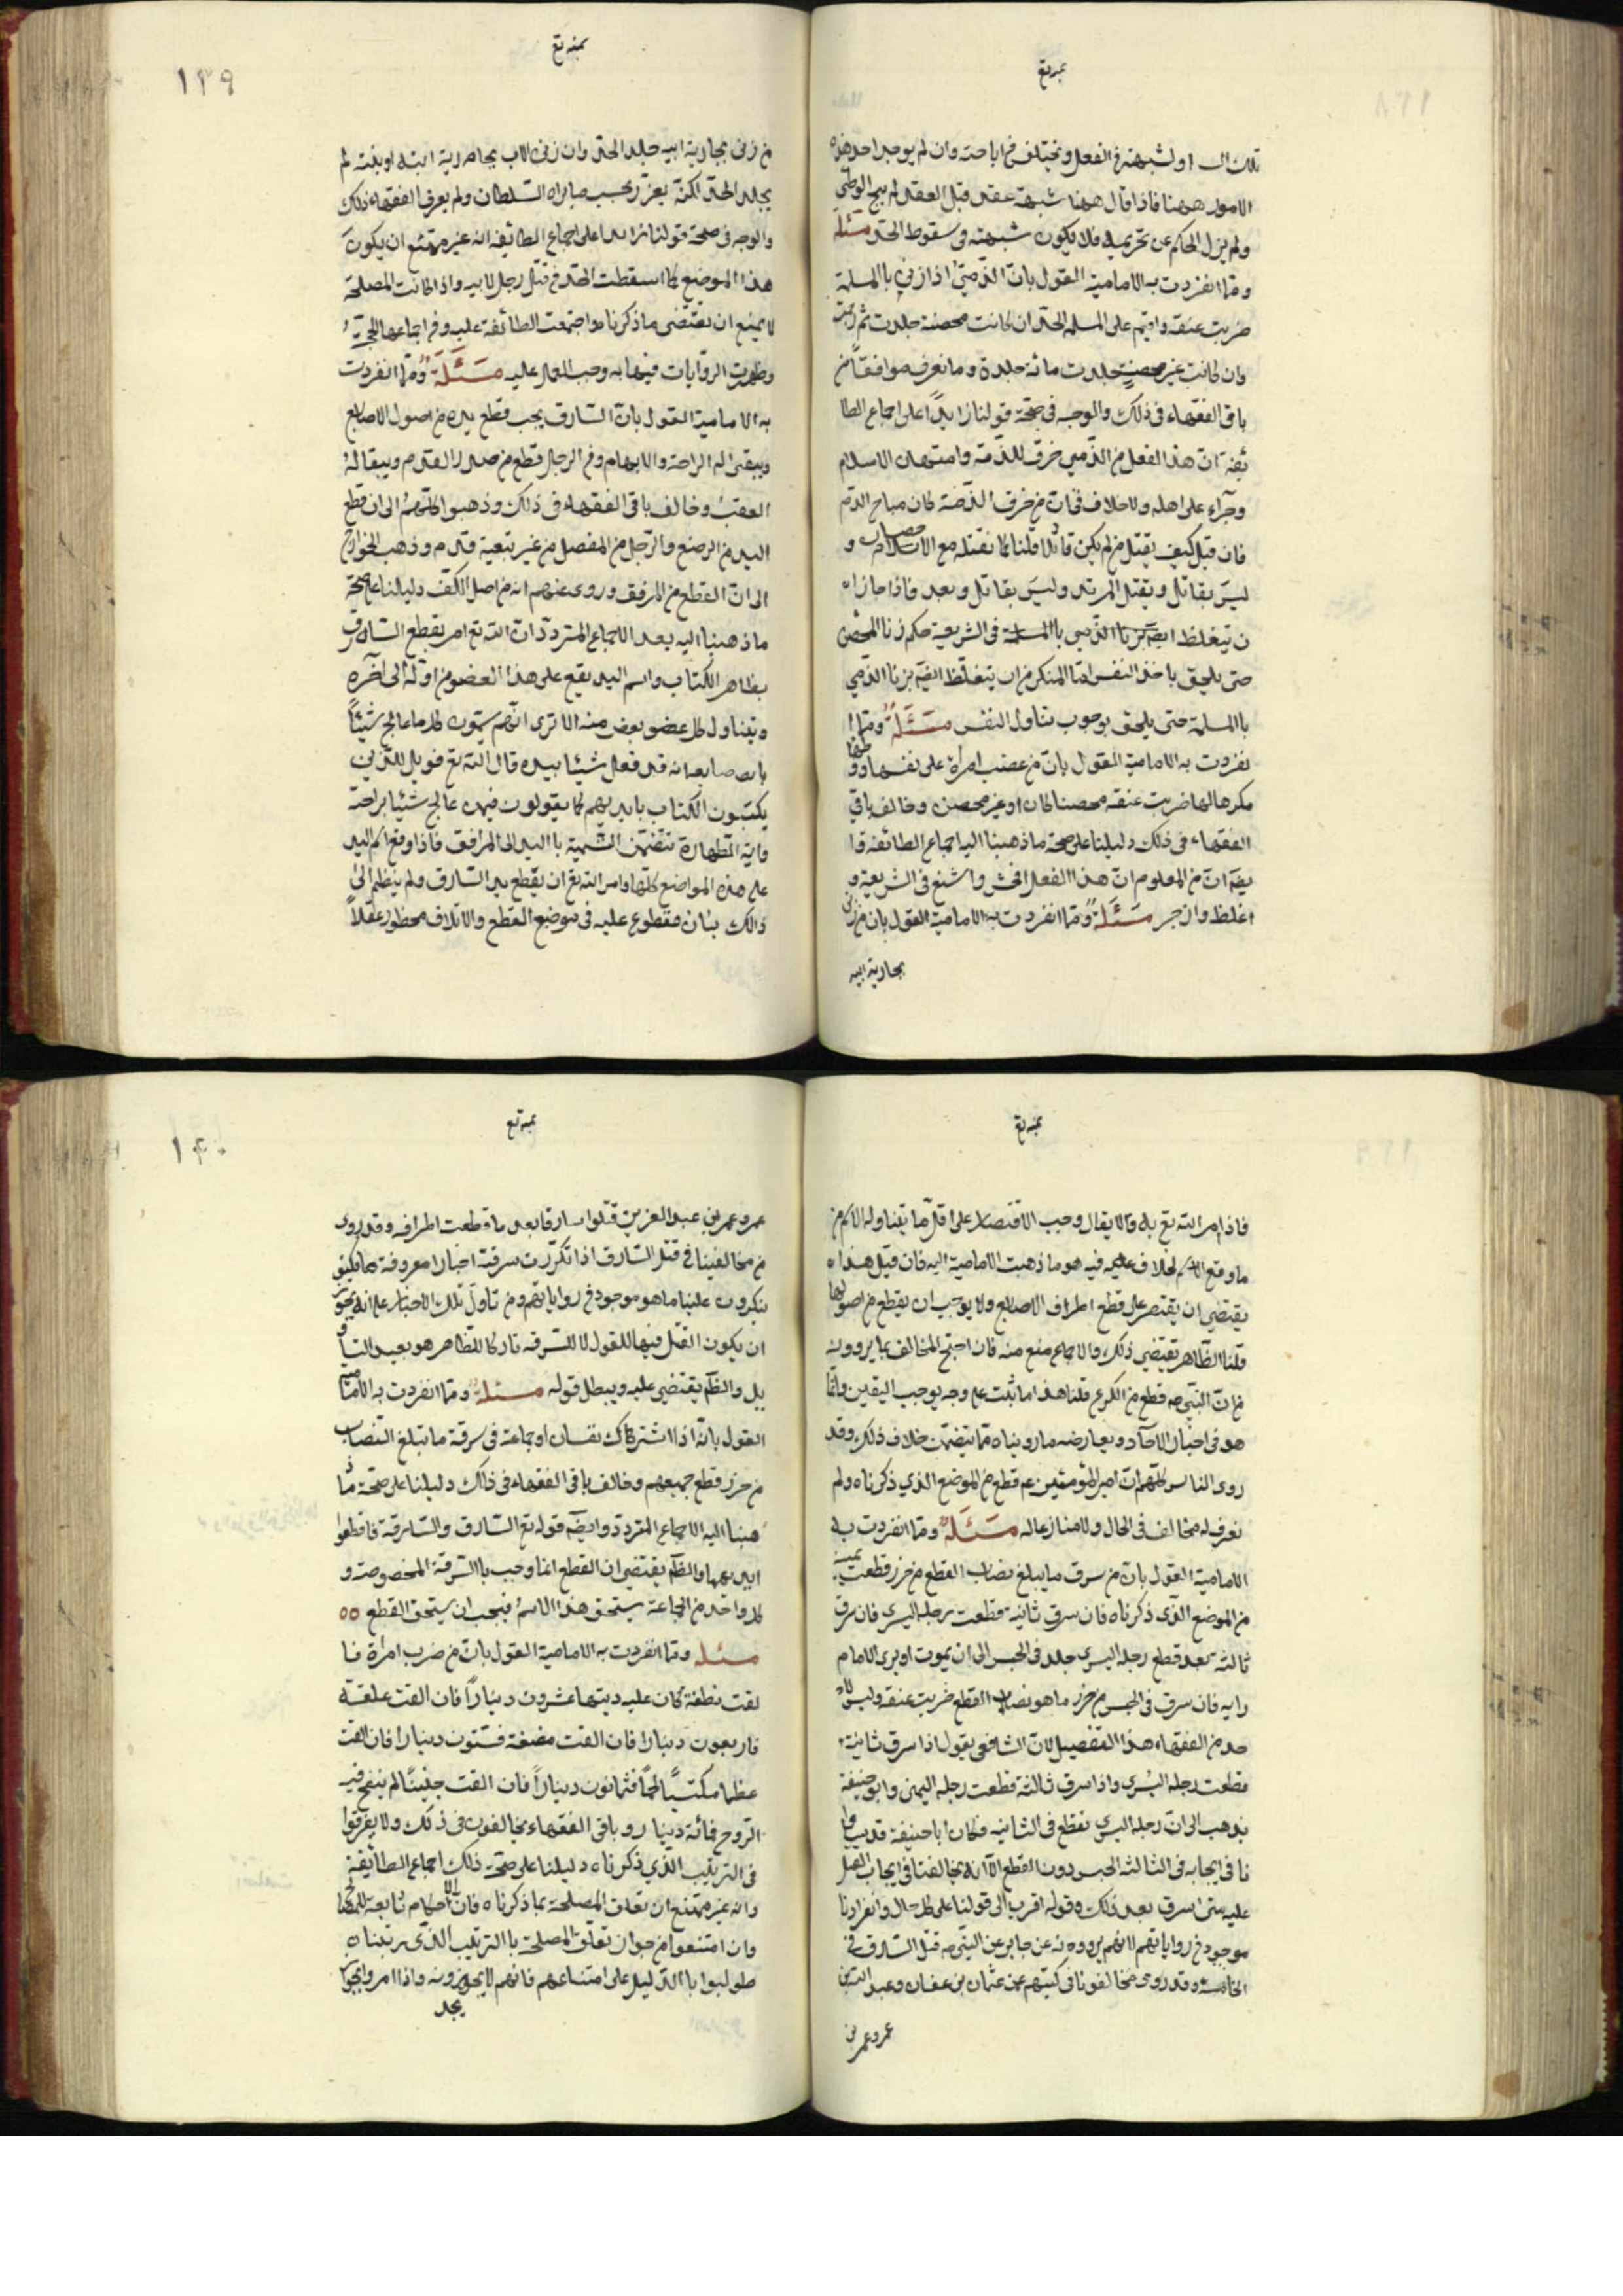 بمنه تع
تلك ال‍ـ اولشبهة فى الفعل و يختلف فى اباحته وان لم يوجد احد هذه
الامور ههنا فاذا قال ههنا شبهة عقد قبل العقد لم يبح الوطى
ولم يزل الحاكم عن تحريمه فلا يكون شبهته فى سقوط الحد مسئلة
ومما انفردت به الامامية القول بان الذمى اذا زنى باالمسلمة
ضربت عنقه واقيم على المسلمة الحد ان كانت محصنة جلدت ثم رجمت
وان كانت غير محصنة جلدت مائة جلدة وما نعرف موافقاً من
باقى الفقهاء فى ذلك والوجه فى صحة قولنا زايداً على اجماع الطا
ئفة ان هذا الفعل من الذمى خرق للذمة وامتهان الاسلام
وجرأة على اهله ولاخلاف فى ان من خرق الذمة كان مباح الدم
فان قيل كيف يقتل من لم يكن قاتلا قلنا كما نقتله مع الاحصان و
ليس بقاتل ويقتل المرتد وليس بقاتل وبعد فاذا جاز ا
ن يتغلظ ايضا زنا الذمى باالمسلمة فى الشريعة حكم زنا المحصن
حتى يلحق باخذ النفس فما المنكر من ان يتغلظ ايضا بزنا الذمى
باالمسلمة حتى يلحق بوجوب تناول النفس مسئلة ومما ا
نفردت به الامامية القول بان من غصب امرأة على نفسها ووطئها
مكرها لها ضربت عنقه محصنا كان او غير محصن وخالف باقى
الفقهاء فى ذلك دليلنا على صحة ما ذهبنا اليه اجماع الطائفة وا
يضا ان من المعلوم ان هذا الفعل افحش واشنع فى الشريعة و
اغلظ وازجر مسئلة ومما انفردت به الامامية القول بان من زنى
بجارية ابيه
١٣٩
بمنه تع
من زنى بجارية ابيه جلد الحد وان زنى الاب بجارية ابنه او بنته لم
يجلد الحد لكنه يعزر بحسب ما يراه السلطان ولم يعرف الفقهاء ذلك
والوجه فى صحة قولنا زايدا على اجماع الطائفة انه غير ممتنع ان يكون
هذا الموضع كما اسقطت الحد فى قتل رجل لابيه واذا كانت المصلحة
لا يمنع ان يقتضى ما ذكرناه واجتمعت الطائفة عليه وفى اجماعها الحجة
وظهرت الروايات فيها به وجب العمل عليه مسئلة ومما انفردت
به الامامية القول بان السارق يجب قطع يده من اصول الاصابع
ويبقى له الراحة والابهام وفى الرجل قطع من صدر القدم ويبقى له
العقب وخالف باقى الفقهاء فى ذلك وذهبوا كلهم الى ان قطع
اليد من الرضغ والرجل من المفصل من غير تبقية قدم وذهب الخوارج
الى ان القطع من المرفق وروى عنهم انه من اصل الكف دليلنا على صحة
ما ذهبنا اليه بعد الاجماع المتردد ان الله تع امر بقطع السارق
بظاهر الكتاب واسم اليد يقع على هذا العضو من اوله الى آخره
ويتناول كل عضو بعض منه الا ترى انهم يسمون كل ما عالج شيئاً
باصابعه انه قد فعل شيئا بيده قال الله تع فويل للذين
يكتبون الكتاب بايديهم كما يقولون فيمن عالج شيئا براحته
واية الطهارة تتضمن التسمية باليد الى المرافق فاذا وقع اسم اليد
على هذه المواضع كلها وامر الله تع ان يقطع يد السارق ولم ينظم الى
ذالك بيان مقطوع عليه فى موضع القطع والاتلاف محظور عقلاً
بمنه تع
فاذا امر الله تع به ولا يقال وجب الاقتصار على اقل ما يتناوله الاسم من
ما وقع الاسم لخلاف عليه فيه هو ما ذهبت الامامية اليه فان قيل هذا
يقتضى ان يقتصر على قطع اطراف الاصابع ولا يوجب ان يقطع من اصولها
قلنا الظاهر يقتضى ذلك والاجماع منع منه فان احتج المخالف بما يروونه
من ان النبى ص قطع من الكرع قلنا هذا ما ثبت على وجه يوجب اليقين وانما
هو فى اخبار الآحاد ويعارضه ما رويناه مما يتضمن خلاف ذلك وقد
روى الناس كلهم ان امير المؤمنين ع قطع من الموضع الذى ذكرناه ولم
نعرف له مخالف فى الحال ولا منازعا له مسئلة ومما انفردت به
الامامية القول بان من سرق ما يبلغ نصاب القطع من حرز قطعت يمينه
من الموضع الذى ذكرناه فان سرق ثانية قطعت رجله اليسرى فان سرق
ثالثة بعد قطع رجله اليسرى جلد فى الحبس الى ان يموت او يرى الامام
رايه فان سرق فى الحبس من حرز ما هو نصاب القطع ضربت عنقه وليس لا
حد من الفقهاء هذا التفصيل لان الشافعى يقول اذا سرق ثانية
قطعت رجله اليسرى واذا سرق ثالثة قطعت رجله اليمنى وابو حنيفة
يذهب الى ان رجله اليسرى تقطع فى الثانية فكان ابا حنيفة قد ساوا
نا فى ايجابه فى الثالثة الحبس دون القطع الا انه يخالفنا فى ايجاب القتل
عليه متى سرق بعد ذلك وقوله اقرب الى قولنا على كل حال وانفرادنا
موجود فى رواياتهم لانهم يروونه عن جابر عن النبى ص قتل السارق فى
الخامسة وقد روى مخالفونا فى كتبهم عن عثمان بن عفان وعبد الله بن
عمر وعمر بن
١٤٠
بمنه تع
عمر وعمر بن عبد العزيز قتلوا سارقا بعد ما قطعت اطرافه وقد روى
من مخالفينا فى قتل السارق اذا تكررت سرقته اخبارا معروفة فكيف
ينكرون علينا ما هو موجود فى رواياتهم ومن تاول تلك الاخبار على انه يجوز
ان يكون القتل فيها للقول لا للسرقة تاركا للظاهر هو بعيد التاو
يل والظم يقتضى عليه ويبطل قوله مسئلة ومما انفردت به الامامية
القول بانه اذا اشترك نفسان او جماعة فى سرقة ما تبلغ النصاب
من حرز قطع جميعهم وخالف باقى الفقهاء فى ذلك دليلنا على صحة ما ذ
هبنا اليه الاجماع المتردد وايضا قوله تع السارق والسارقة فاقطعوا
ايديهما والظم يقتضى ان القطع انما وجب باالسرقة المخصوصة و
كل واحد من الجماعة يستحق هذا الاسم فيجب ان يستحق القطع ٥٥
مسئله ومما انفردت به الامامية القول بان من ضرب امرأة فا
لقت نطفة كان عليه ديتها عشرون ديناراً فان القت علقة
فاربعون دينارا فان القت مضغة فستون دينارا فان القت
عظما مكتسياً لحماً فثمانون ديناراً فان القت جنيناً لم ينفخ فيه
الروح فمائة دينار وباقى الفقهاء يخالفون فى ذلك ولا يفرقوا
فى الترتيب الذى ذكرناه دليلنا على صحة ذلك اجماع الطائفة
وانه غير ممتنع ان تعلق المصلحة بما ذكرناه فان الاحكام تابعة للمصالح
وان امتنعوا من جواز تعلق المصلحة باالترتيب الذى رتبناه
طولبوا باالدليل على امتناعهم فانهم لا يجدونه واذا امروا بجواز
يجد